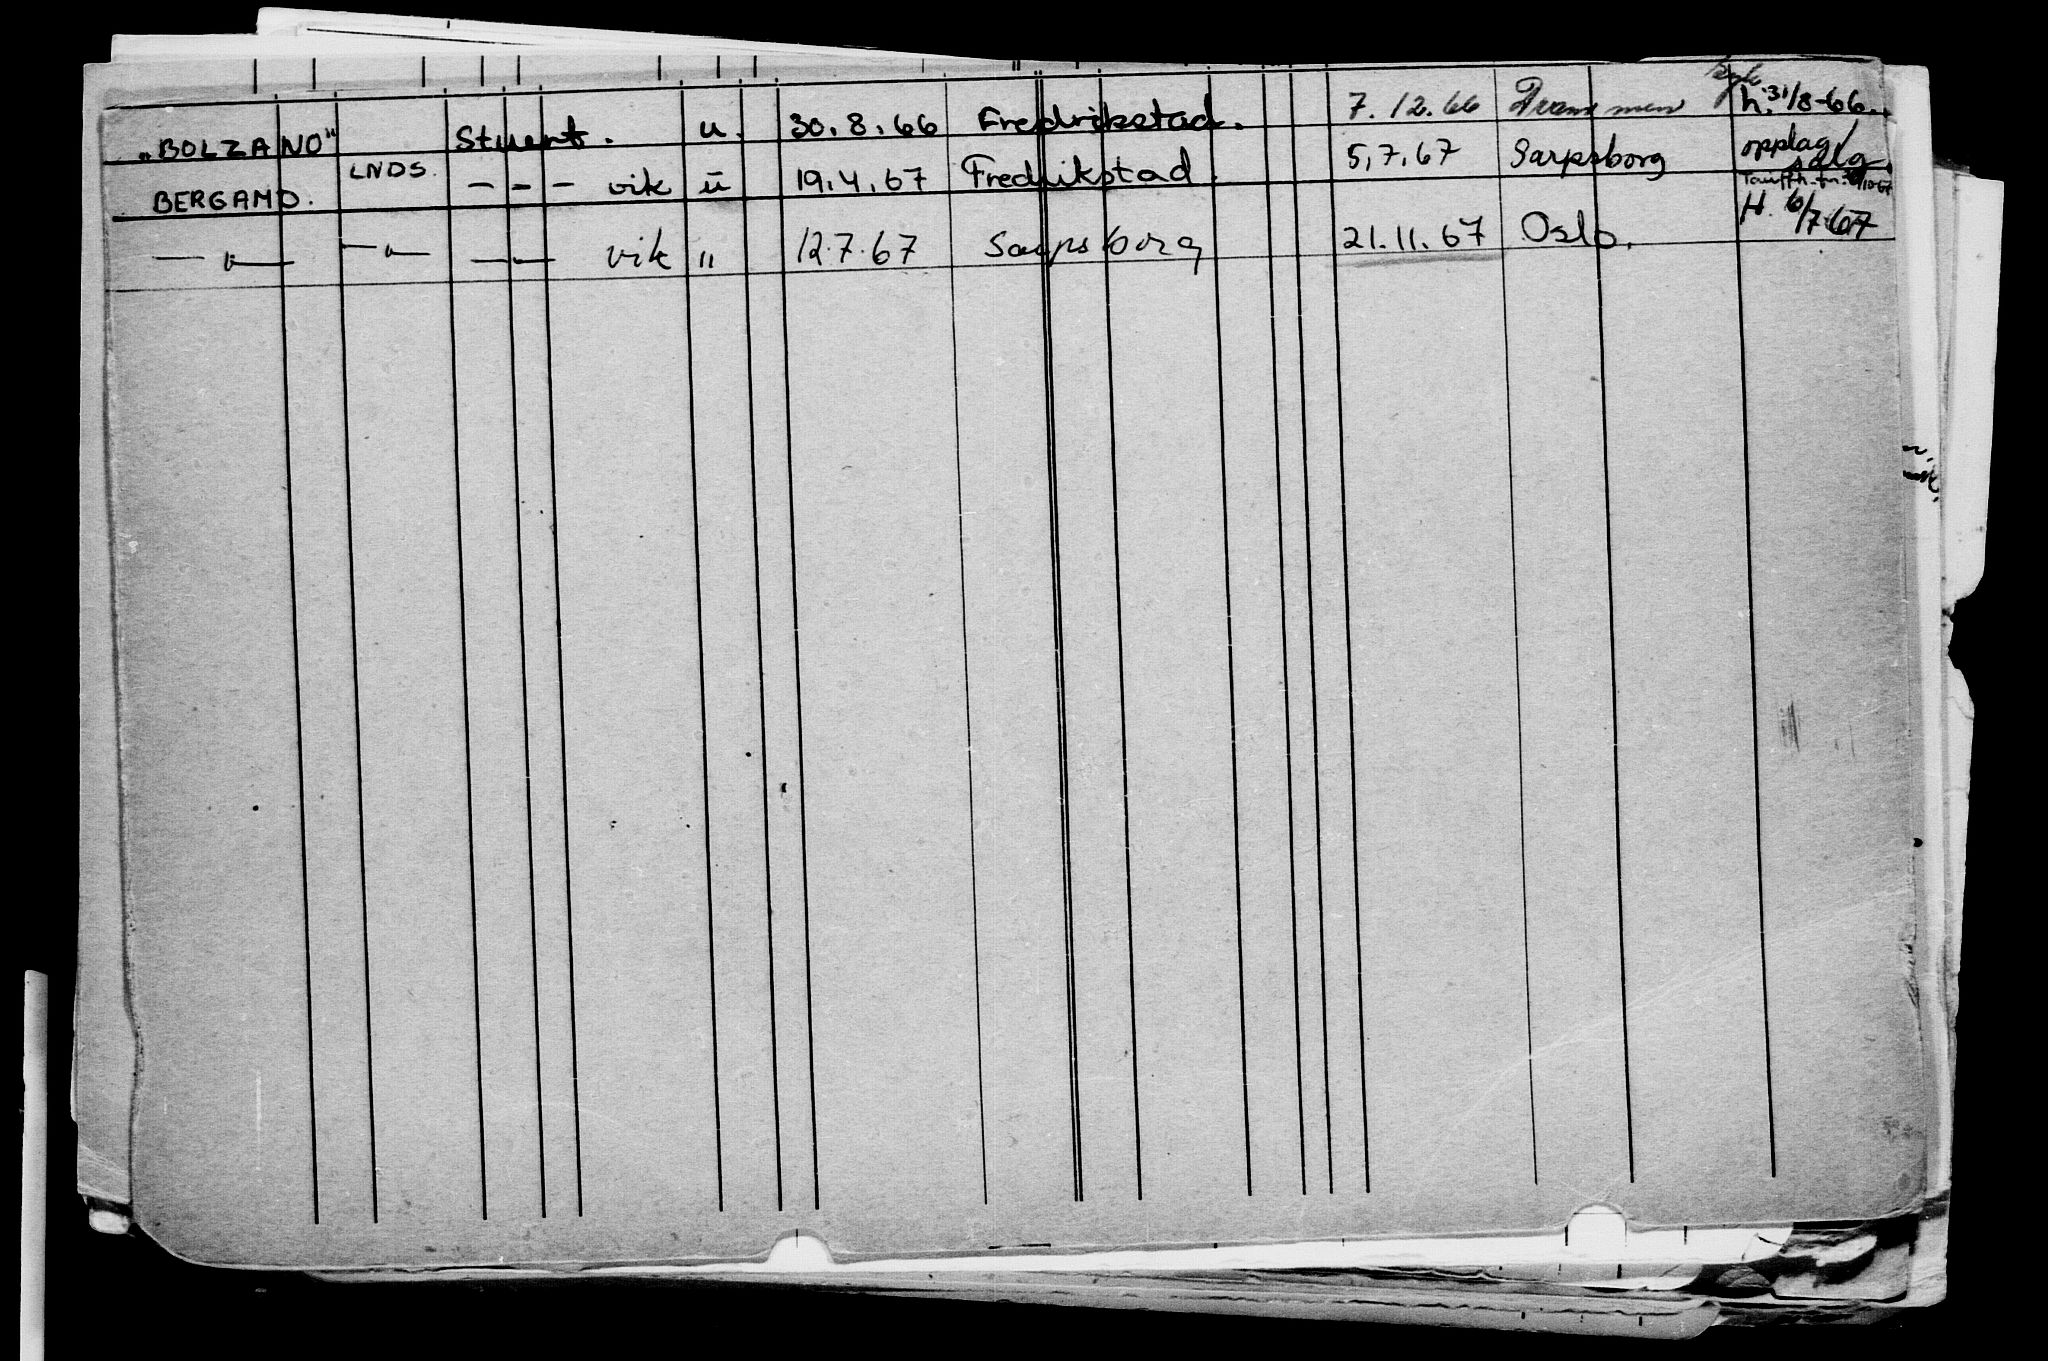 „BOLZANO" Stuert. u. 30.8.66 Fredrikstad. 7.12.66 Drammen h. 31/8-66.
BERGAMO. LNDS. — — — vik ü 19.4.67 Fredrikstad. 5,7,67 Sarpsborg opplag/salg.
— " — — " — — " — vik " 12.7.67 Sarpsborg 21.11.67 Oslo. H. 6/7-67